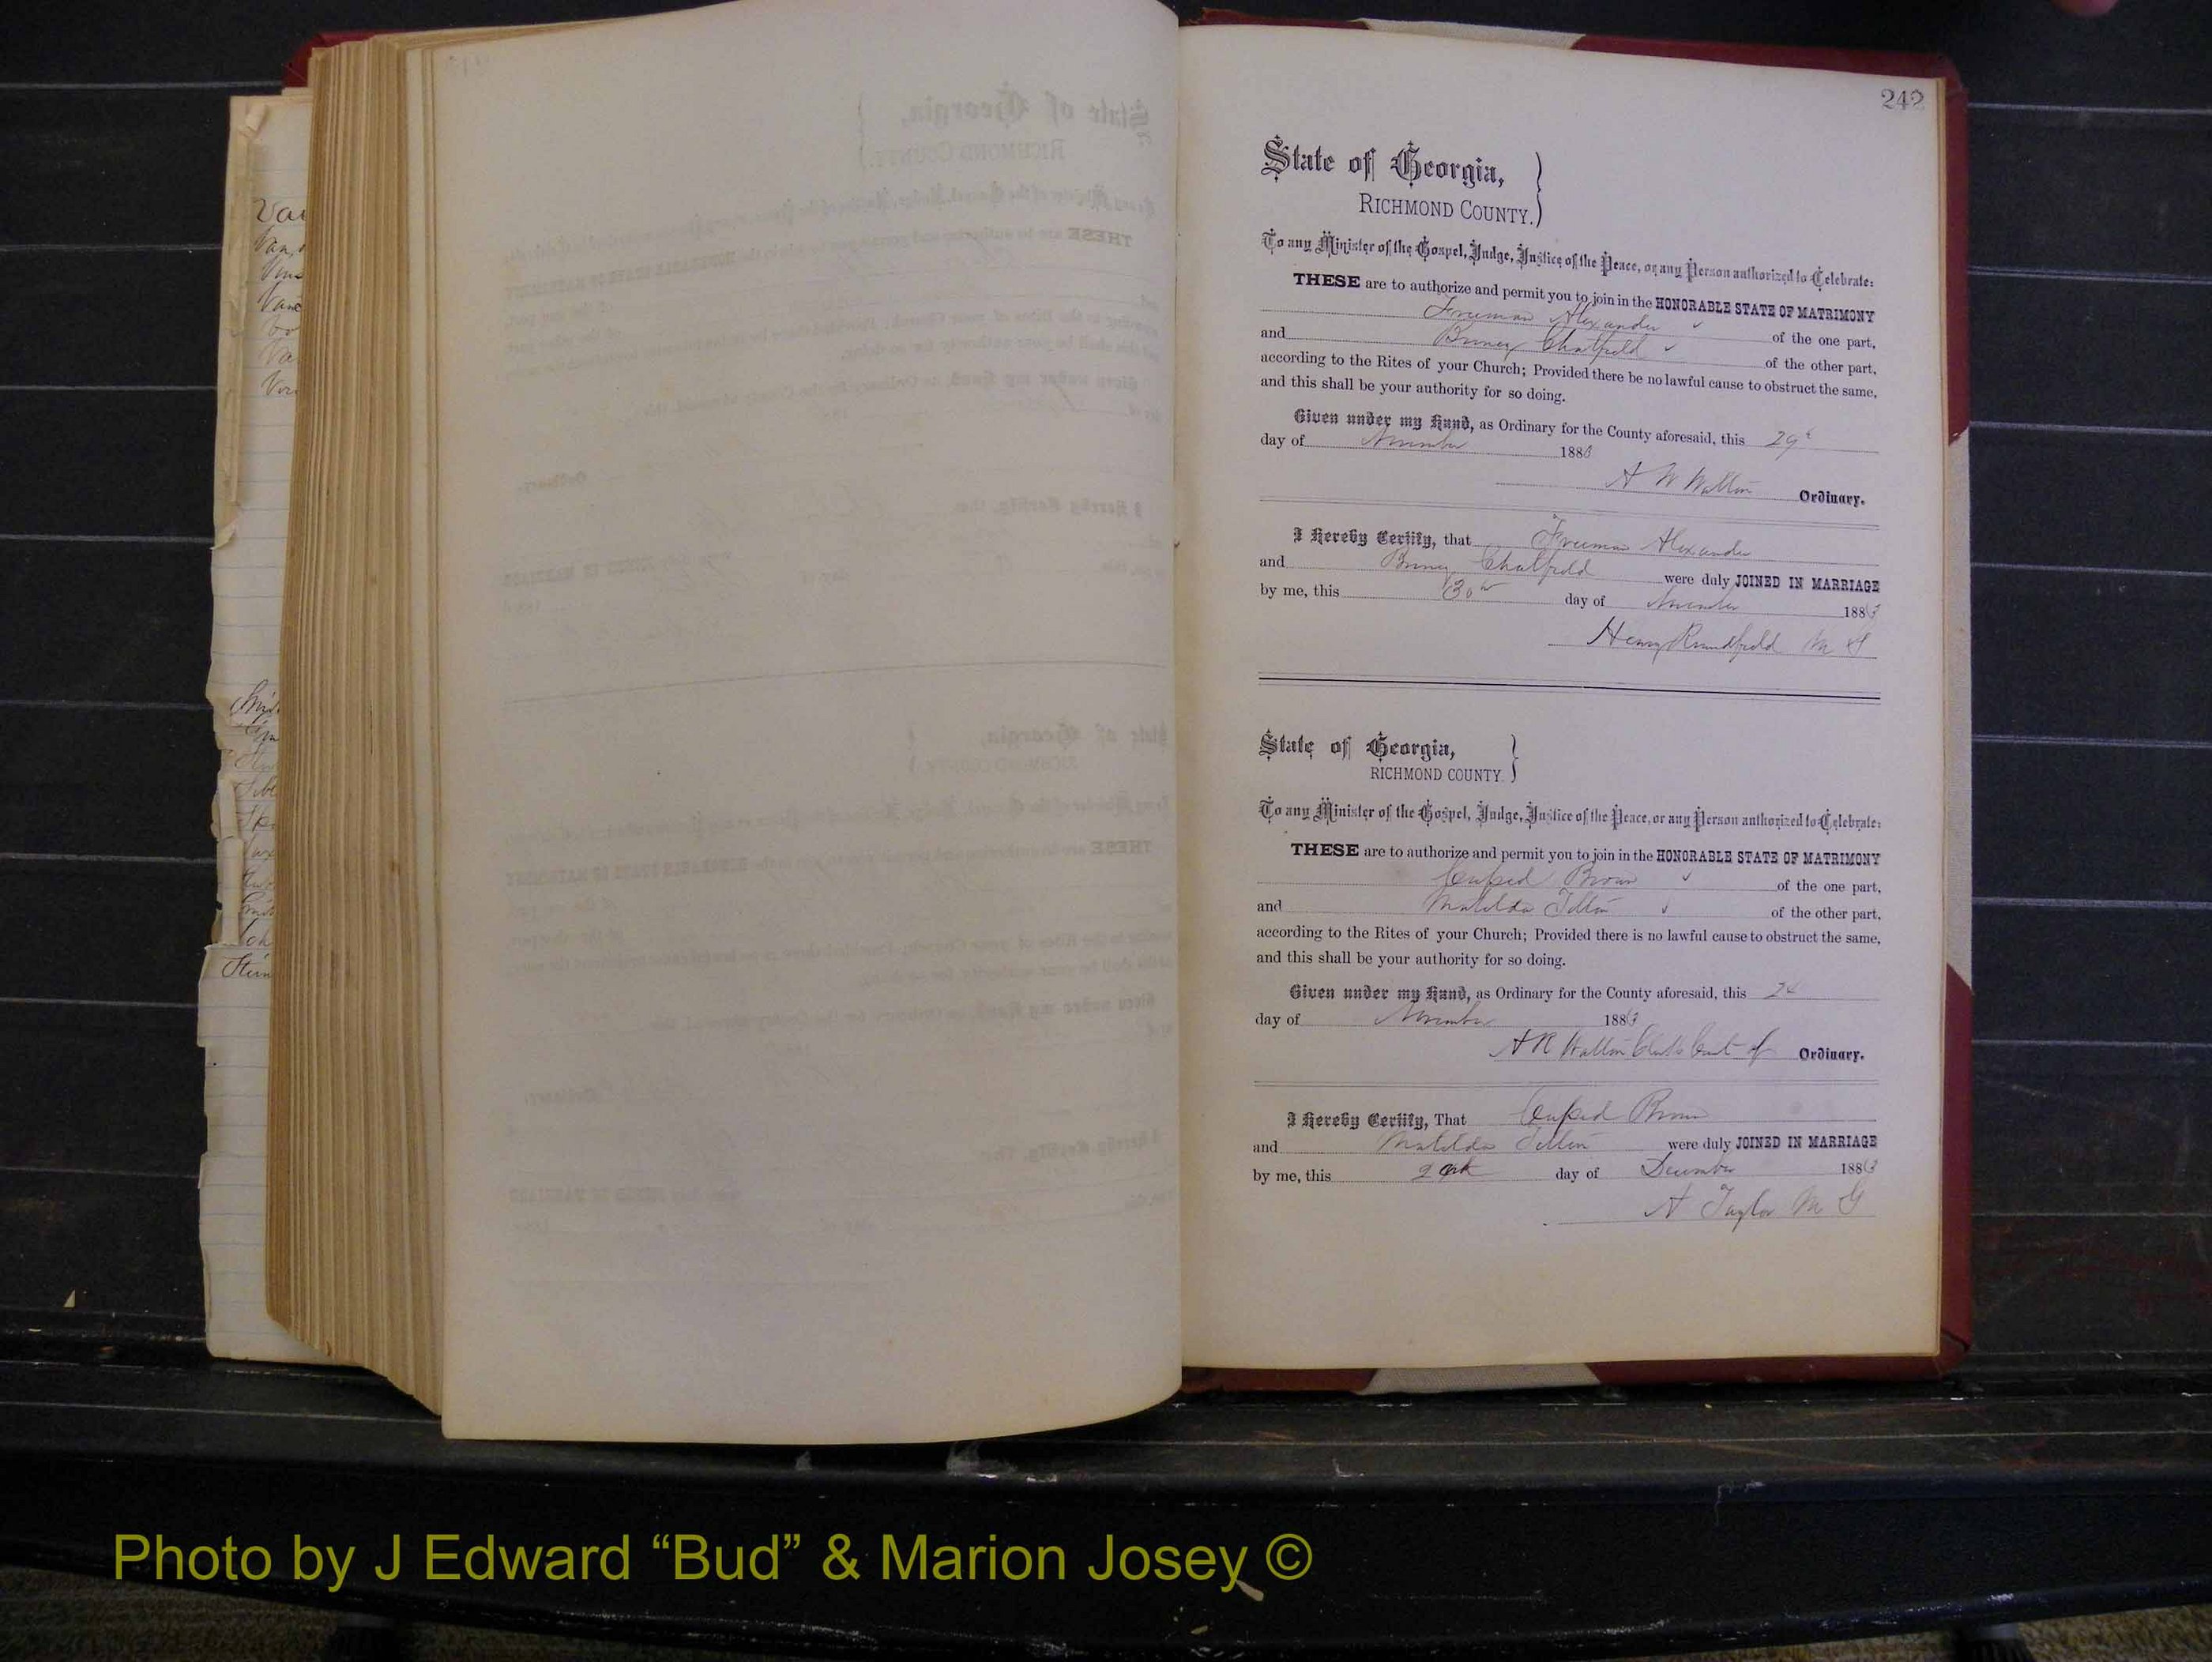 242
State of Georgia,
RICHMOND COUNTY.
To any Minister of the Gospel, Judge, Justice of the Peace, or any Person authorized to Celebrate:
THESE are to authorize and permit you to join in the HONORABLE STATE OF MATRIMONY
Freeman Alexander of the one part,
and Chatfield of the other part,
according to the Rites of your Church; Provided there be no lawful cause to obstruct the same,
and this shall be your authority for so doing.
Given under my Hand, as Ordinary for the County aforesaid, this 29
day of November 1883
Walton Ordinary.
I Hereby Certify, that Freeman Alexander
and Chatfield were duly JOINED IN MARRIAGE
by me, this 30 day of November 1883
Henry M G
State of Georgia,
RICHMOND COUNTY.
To any Minister of the Gospel, Judge, Justice of the Peace, or any Person authorized to Celebrate:
THESE are to authorize and permit you to join in the HONORABLE STATE OF MATRIMONY
Brown of the one part,
and Matilda of the other part,
according to the Rites of your Church; Provided there is no lawful cause to obstruct the same,
and this shall be your authority for so doing.
Given under my Hand, as Ordinary for the County aforesaid, this
day of November 1883
Walton Ordinary.
I Hereby Certify, That Brown
and Matilda were duly JOINED IN MARRIAGE
by me, this day of December 1883
A Taylor M G
Photo by J Edward “Bud” & Marion Josey ©